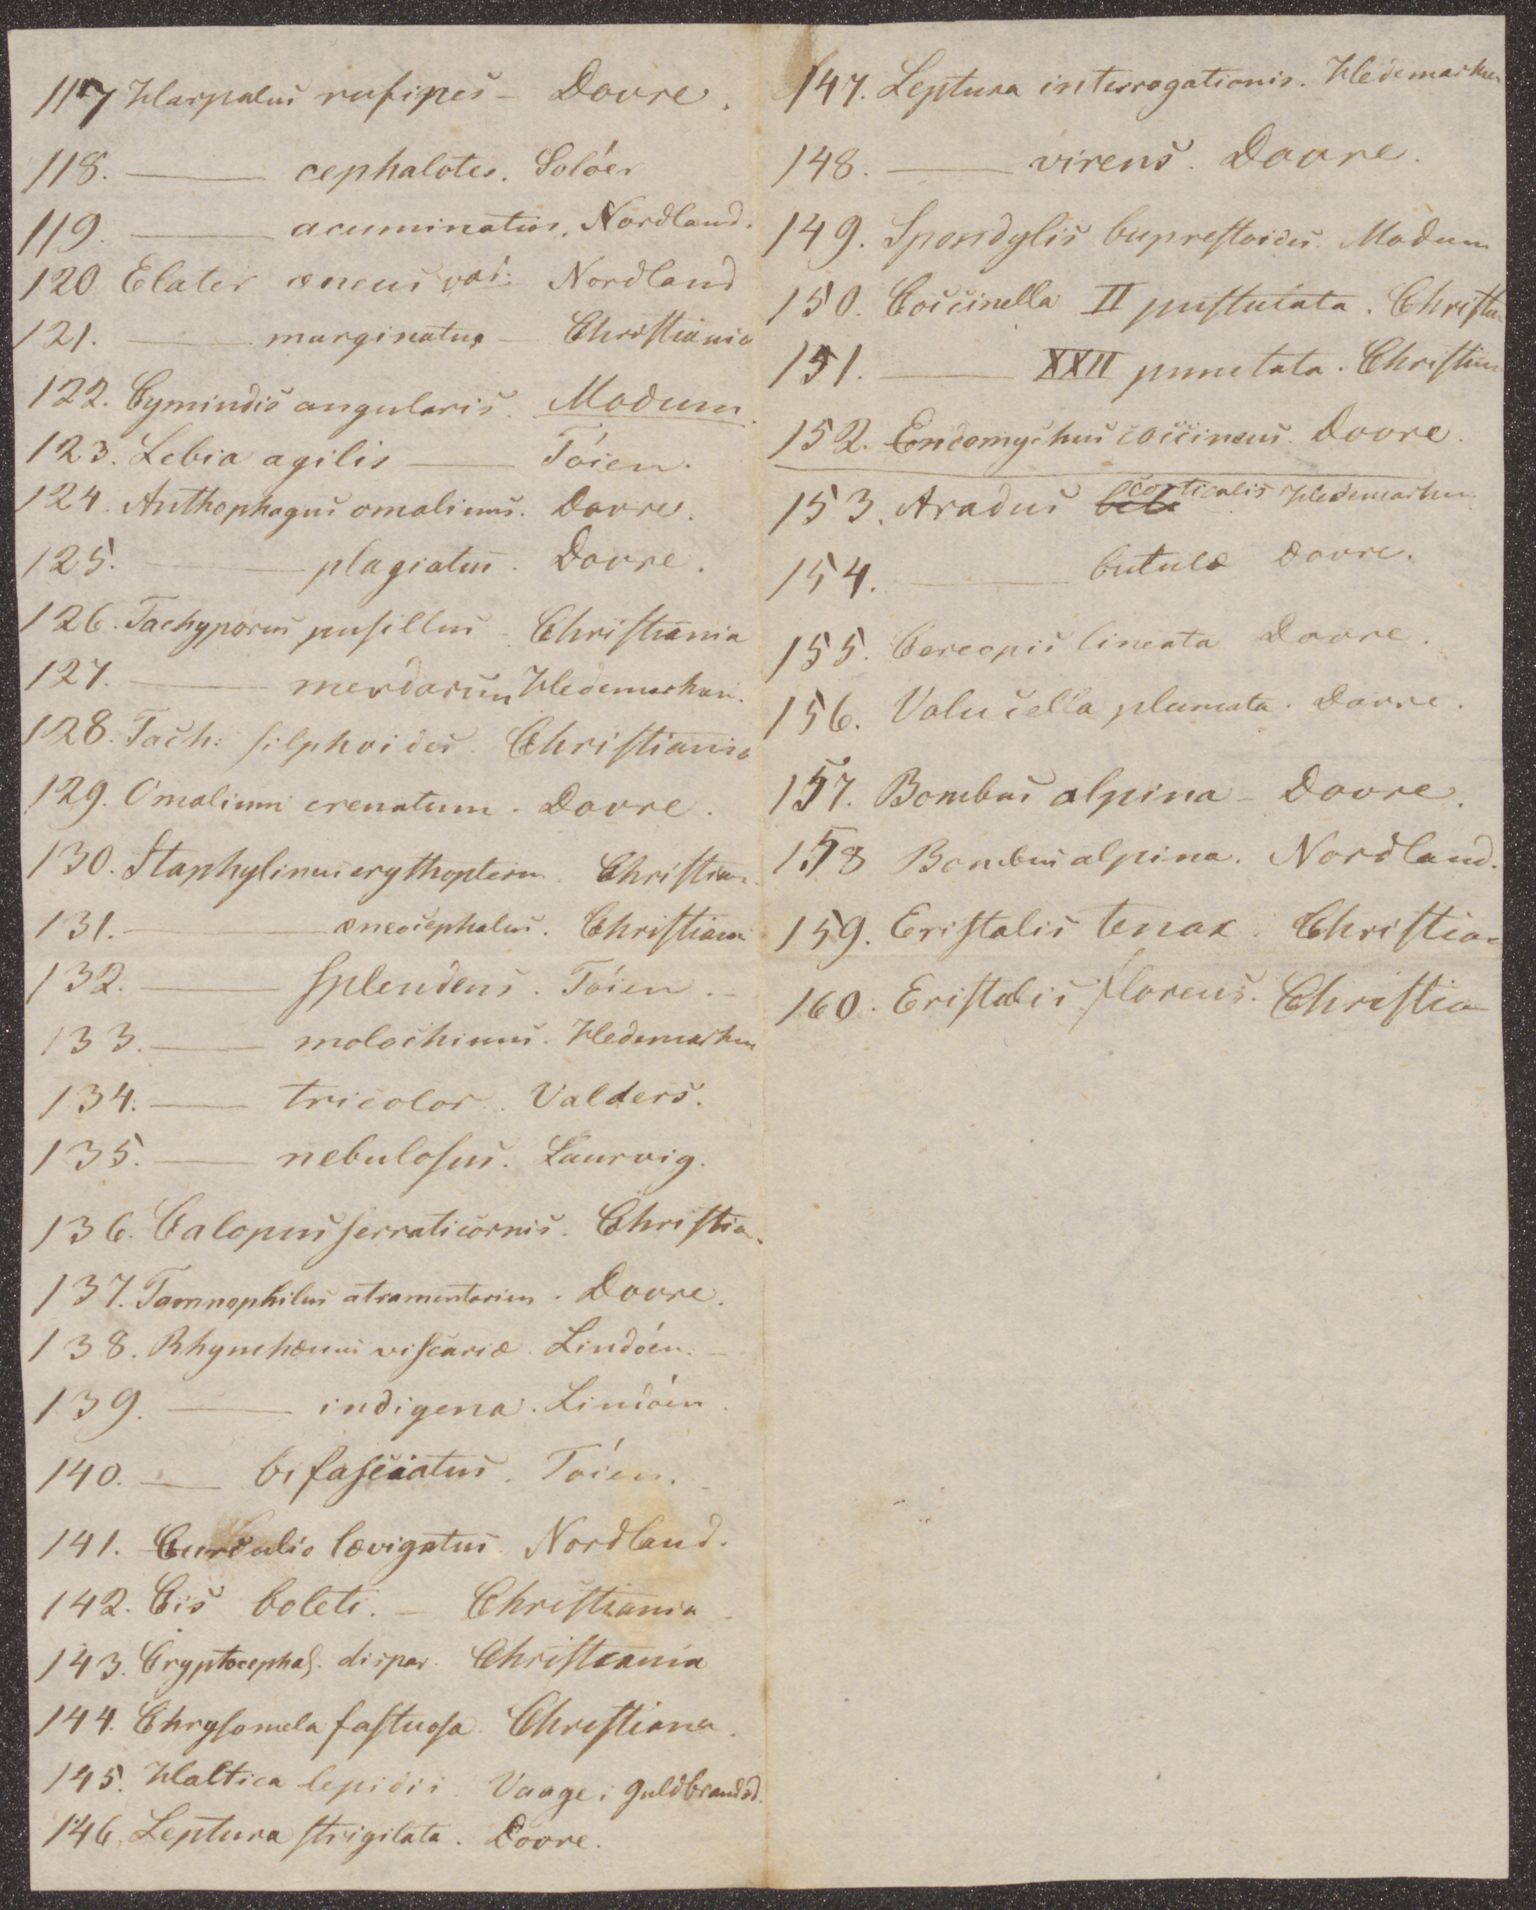 117 Harpalus rufipes – Dovre.
118. —— cephalotes. Solóer
119. —— acuminatus. Nordland.
120 Elater æneus var: Nordland
121. —— marginatus – Christiania
122. Cymindis angularis. Modum.
123. Lebia agilis —— Tóien.
124. Anthophagus omalinus. Dovre.
125. —— plagiatus. Dovre.
126. Tachyporus pusillus – Christiania
127. —— merdarius Hedemarken.
128. Tach: silphoides. Christiania
129. Omalium crenatum. Dovre.
130. Staphylinus erythopterus. Christian.
131. —— æneocephalus. Christiania
132. —— splendens. Tóien. –
133. —— molochinus. Hedemarken
134. —— tricolor. Valders.
135. —— nebulosus. Laurvig.
136. Calopus serraticornis. Christia.
137. Tamnophilus atramentarius. Dovre.
138. Rhynchænus viscariæ. Lindóen. –
139. —— indigena. Lindóen.
140. —— bifasciatus. Tóien.
141. Curculio lævigatus. Nordland.
142. Cis boleti. – Christiania
143. Cryptocephal. dispar. Christiania
144. Chrysomela fastuosa. Christiana.
145. Haltica lepidii. Vaage i Guldbrandsd.
146. Leptura strigilata. Dovre.
147. Leptura interrogationis. Hedemarken
148. —— virens. Dovre.
149. Spondylis buprestoides. Modum
150. Coccinella II pustulata. Christia
151. —— XXII punctata. Christian
152. Endomychus coccineus. Dovre.
153. Aradus corticalis Hedemarken.
154. —— betulæ Dovre.
155. Cercopis lineata Dovre.
156. Volucella plumata. Dovre.
157. Bombus alpina – Dovre.
158 Bombus alpina. Nordland.
159. Eristalis tenax. Christian
160. Eristalis floreus. Christia